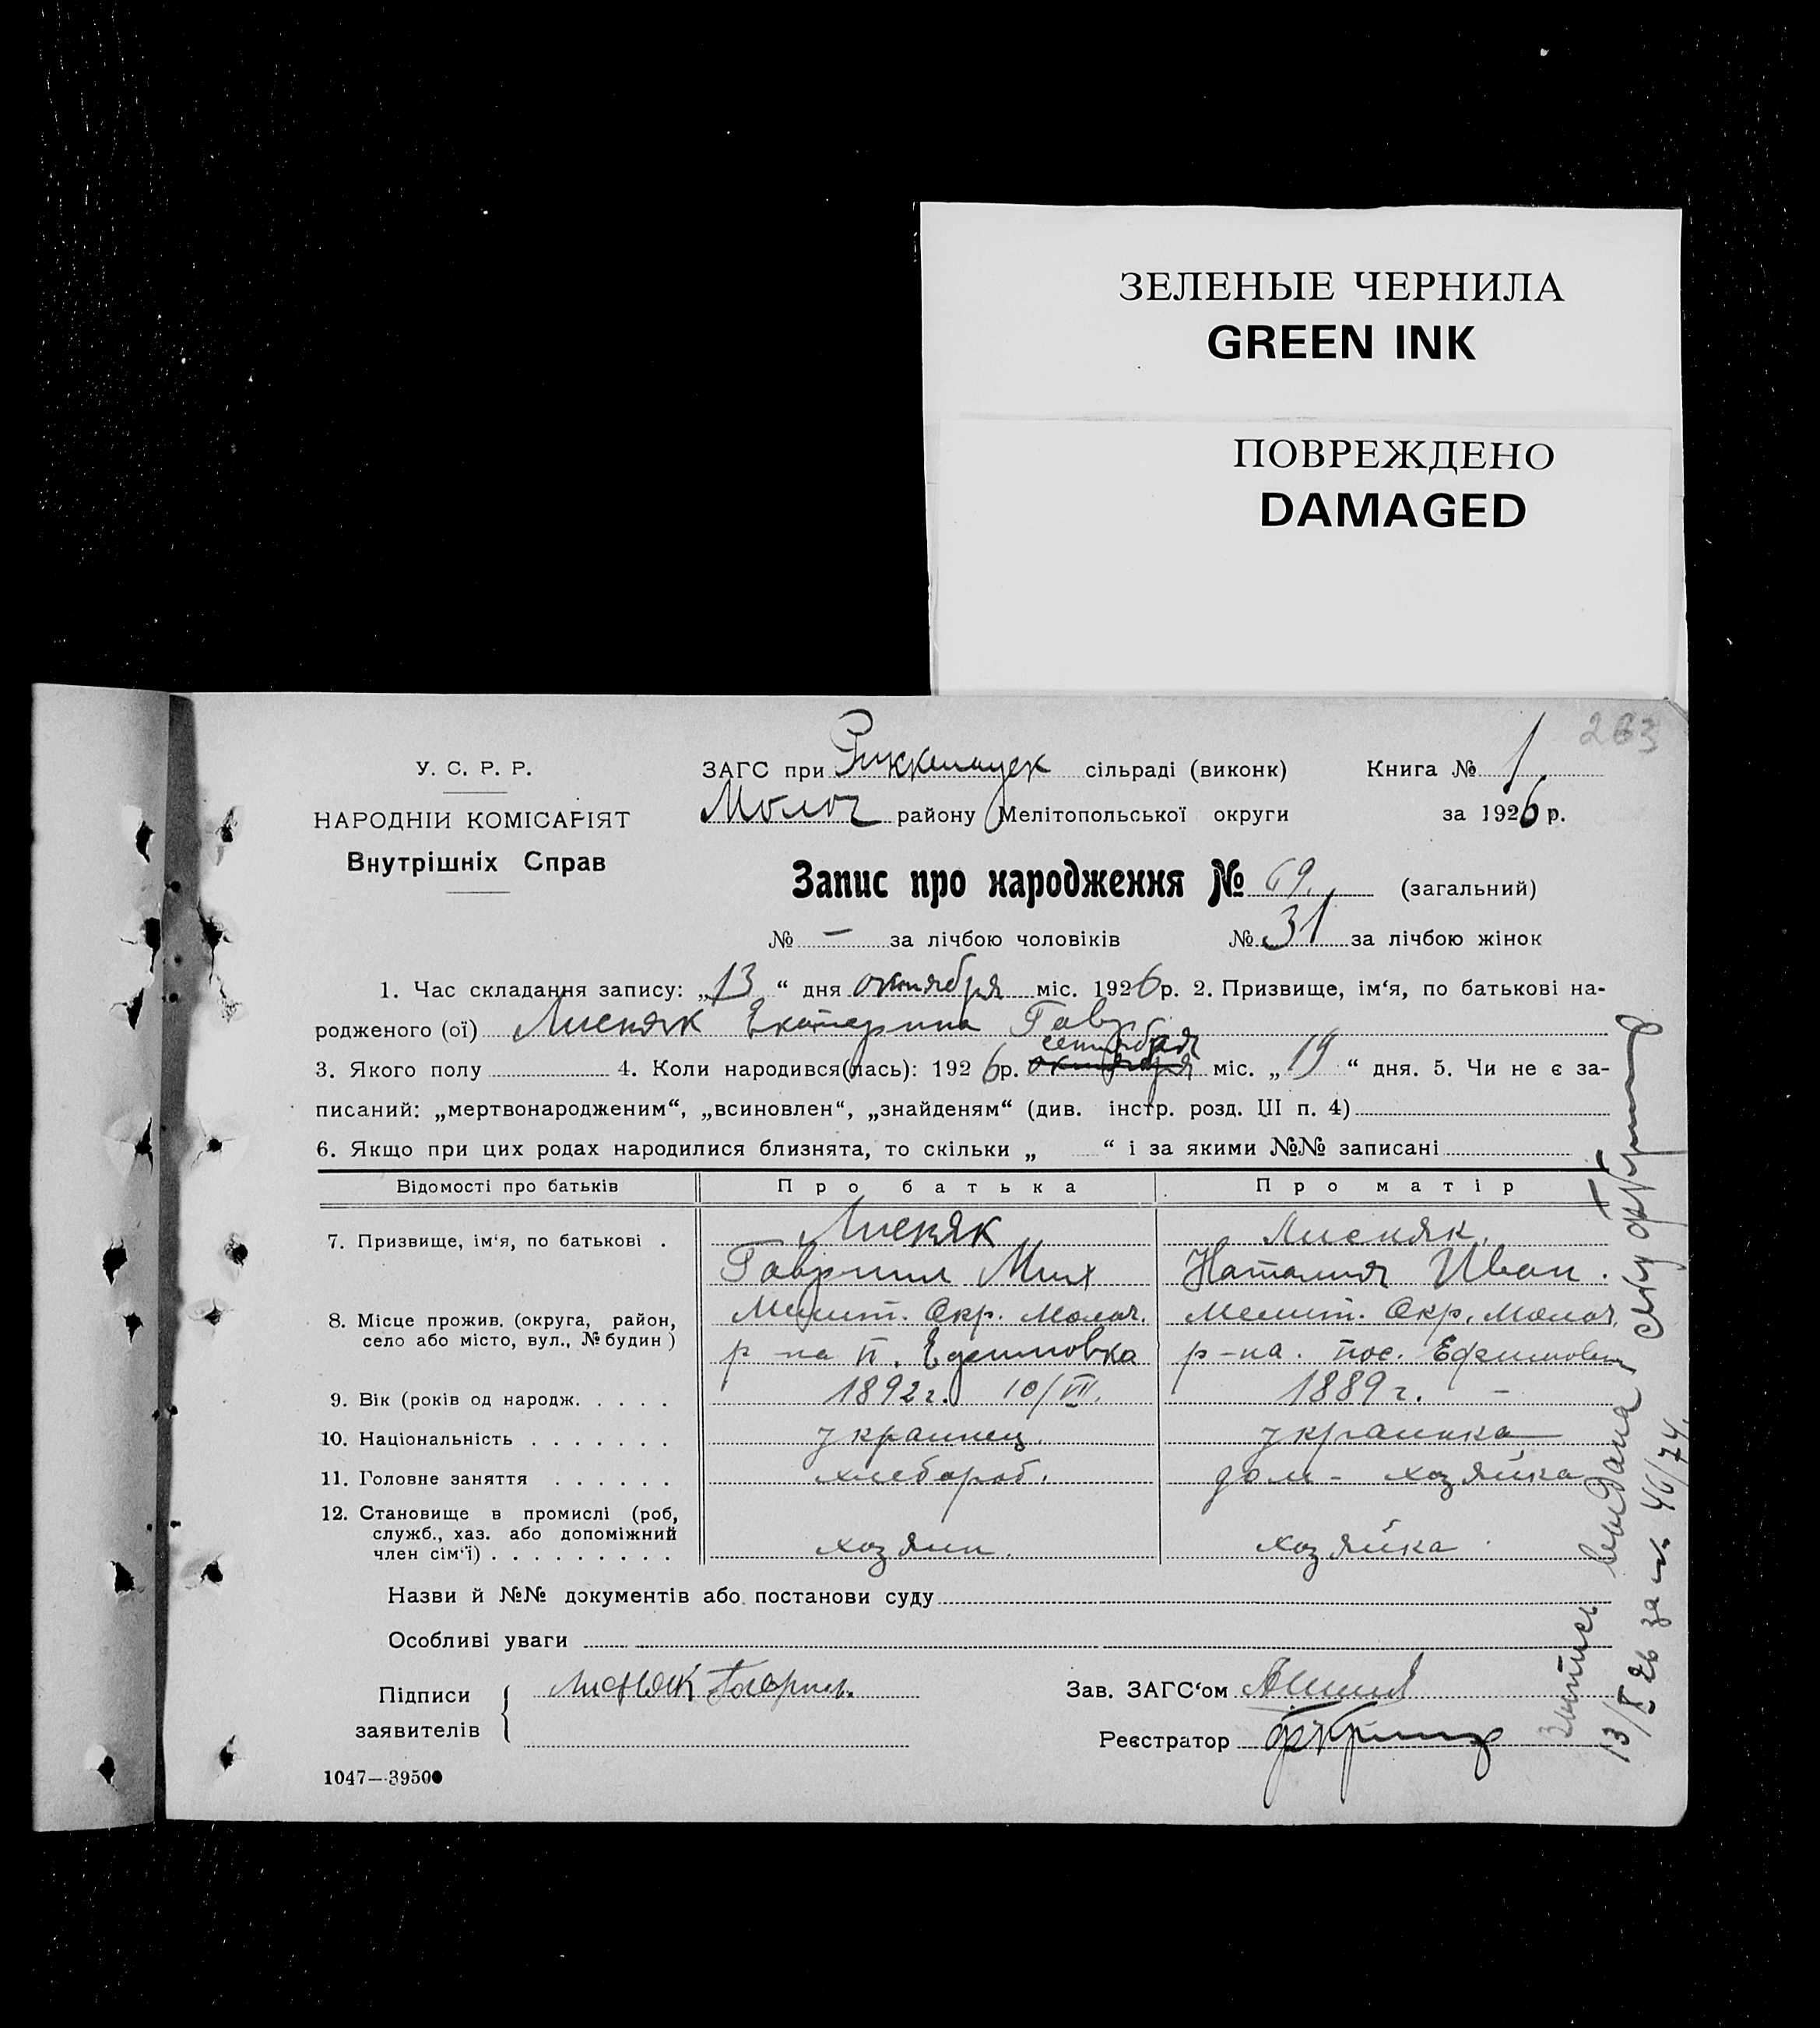 ЗЕЛЕНЫЕ ЧЕРНИЛА
GREEN INK
ПОВРЕЖДЕНО
DAMAGED
263
У. С. Р. Р.
НАРОДНІЙ КОМІСАРІЯТ
Внутрішніх Справ
ЗАГС при сільраді (виконк) Книга № 1.
Молоч району Мелітопольської округи за 1926 р.
Запис про народження № 69. (загальний)
№ — за лічбою чоловіків № 31 за лічбою жінок
1. Час складання запису: „13“ дня октября міс. 1926 р. 2. Призвище, ім'я, по батькові на-
родженого (ої) Лисняк Екатерина Гавр.
сентября
3. Якого полу 4. Коли народився(лась): 1926 р. октября міс. „19“ дня. 5. Чи не є за-
писаний: „мертвонародженим“, „всиновлен“, „знайденям“ (див. інстр. розд. III п. 4)
6. Якщо при цих родах народилися близнята, то скільки „ “ і за якими №№ записані
Відомості про батьків Про батька Про матір
7. Призвище, ім'я, по батькові . Лисняк Лисняк.
Гавриил Мих Наталия Иван.
8. Місце прожив. (округа, район, село або місто, вул., № будин) Мелит. Окр. Молоч. Мелит. Окр. Молоч.
р-на п. Ефимовка р-на. пос. Ефимовка
9. Вік (років од народж. . . . . 1892 г. 10/VII. 1889 г. —
10. Національність . . . . . . . украинец. украинка
11. Головне заняття . . . . . . хлебороб. дом-хозяйка
12. Становище в промислі (роб, служб., хаз. або допоміжний член сім'ї) . . . . . . . . . хозяин. хозяйка
Назви й №№ документів або постанови суду
Особливі уваги
Підписи заявителів Лисняк Гаврил. Зав. ЗАГС'ом
Реєстратор
1047—39500
выдана
13/X 26 за № 46/74.